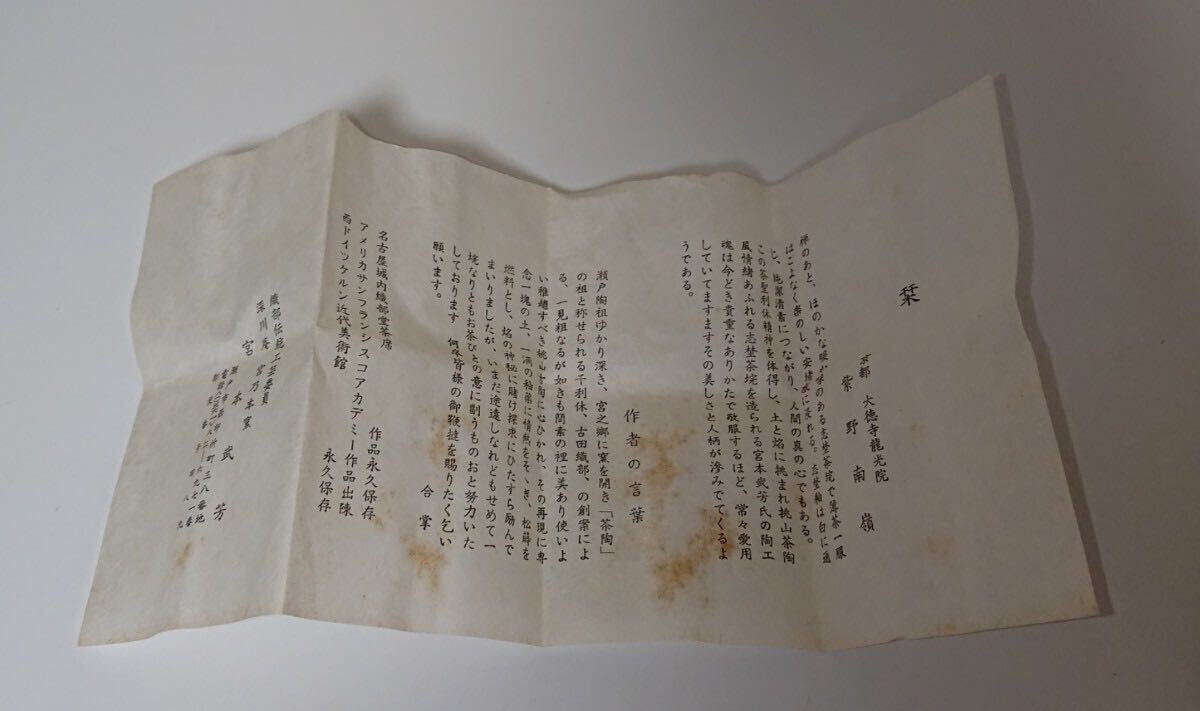 栞
京都 大徳寺龍光院
紫野南嶺
禅のあと、ほのかな暖か味のある志埜茶埦で薄茶一服
はこよなく楽のしい安堵感に充れる。志埜釉は白に通
じ、純潔清素につながり、人間の真の心でもある。
この茶聖利休精神を体得し、土と焰に挑まれ桃山茶陶
風情緒あふれる志埜茶埦を造られる宮本武芳氏の陶工
魂は今どき貴重なありかたで敬服するほど、常々愛用
していてますますその美しさと人柄が滲みでてくるよ
うである。
作者の言葉
瀬戸陶祖ゆかり深き、宮之郷に窯を開き「茶陶」
の祖と祢せられる千利休、古田織部、の創案によ
る、一見粗なるが如きも間素の裡に美あり使いよ
い稚趣すべき桃山古陶に心ひかれ、その再現に専
念一塊の土、一滴の釉薬に情熱をそゝぎ、松蒔を
燃料とし、焰の神秘に賭け探求にひたすら励んで
まいりましたが、いまだ途遠しなれどもせめて一
埦なりともお茶びとの意に副うものおと努力いた
しております 何卒皆様の御鞭撻を賜りたく乞い
願います。
合掌
名古屋城内織部堂茶席 作品永久保存
アメリカサンフランシスコアカデミー作品出陳
西ドイツケルン近代美術館 永久保存
織部伝統工芸委員
深川庵 宮乃本窯
宮本武芳
瀬戸市 町三八番地